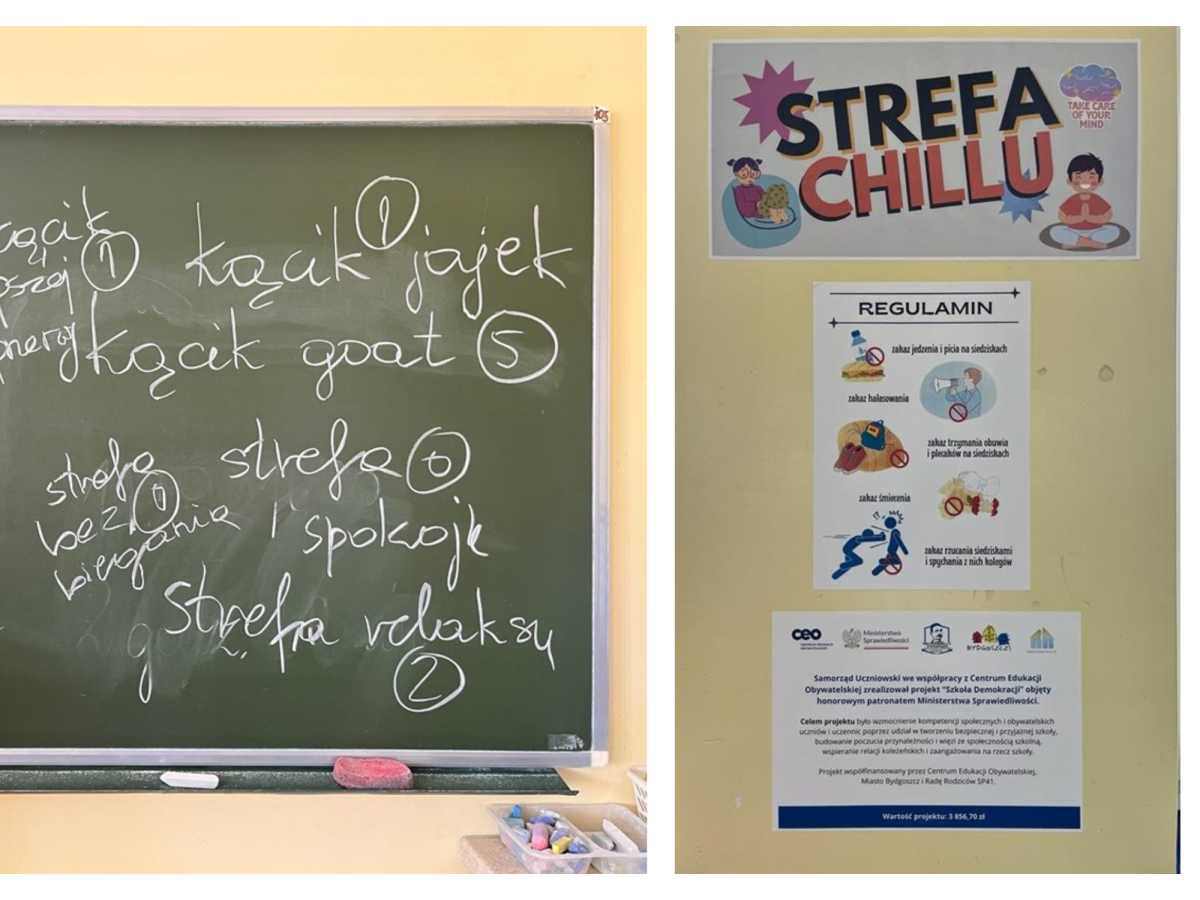 kącik
1
kącik jajek
1
kącik goat 5
strefa 0
spokoju
strefa
bez 1
biegania
strefa relaksu
2
105
STREFA
CHILLU
TAKE CARE
OF YOUR
MIND
REGULAMIN
zakaz jedzenia i picia na siedziskach
zakaz hałasowania
zakaz trzymania obuwia
i plecaków na siedziskach
zakaz śmiecenia
zakaz rzucania siedziskami
i spychania z nich kolegów
ceo
Ministerstwo
Sprawiedliwości
BYDGOSZCZ
Samorząd Uczniowski we współpracy z Centrum Edukacji
Obywatelskiej zrealizował projekt "Szkoła Demokracji" objęty
honorowym patronatem Ministerstwa Sprawiedliwości.
Celem projektu było wzmocnienie kompetencji społecznych i obywatelskich
uczniów i uczennic poprzez udział w tworzeniu bezpiecznej i przyjaznej szkoły,
budowanie poczucia przynależności i więzi ze społecznością szkolną,
wspieranie relacji koleżeńskich i zaangażowania na rzecz szkoły.
Projekt współfinansowany przez Centrum Edukacji Obywatelskiej,
Miasto Bydgoszcz i Radę Rodziców SP41.
Wartość projektu: 3 856,70 zł